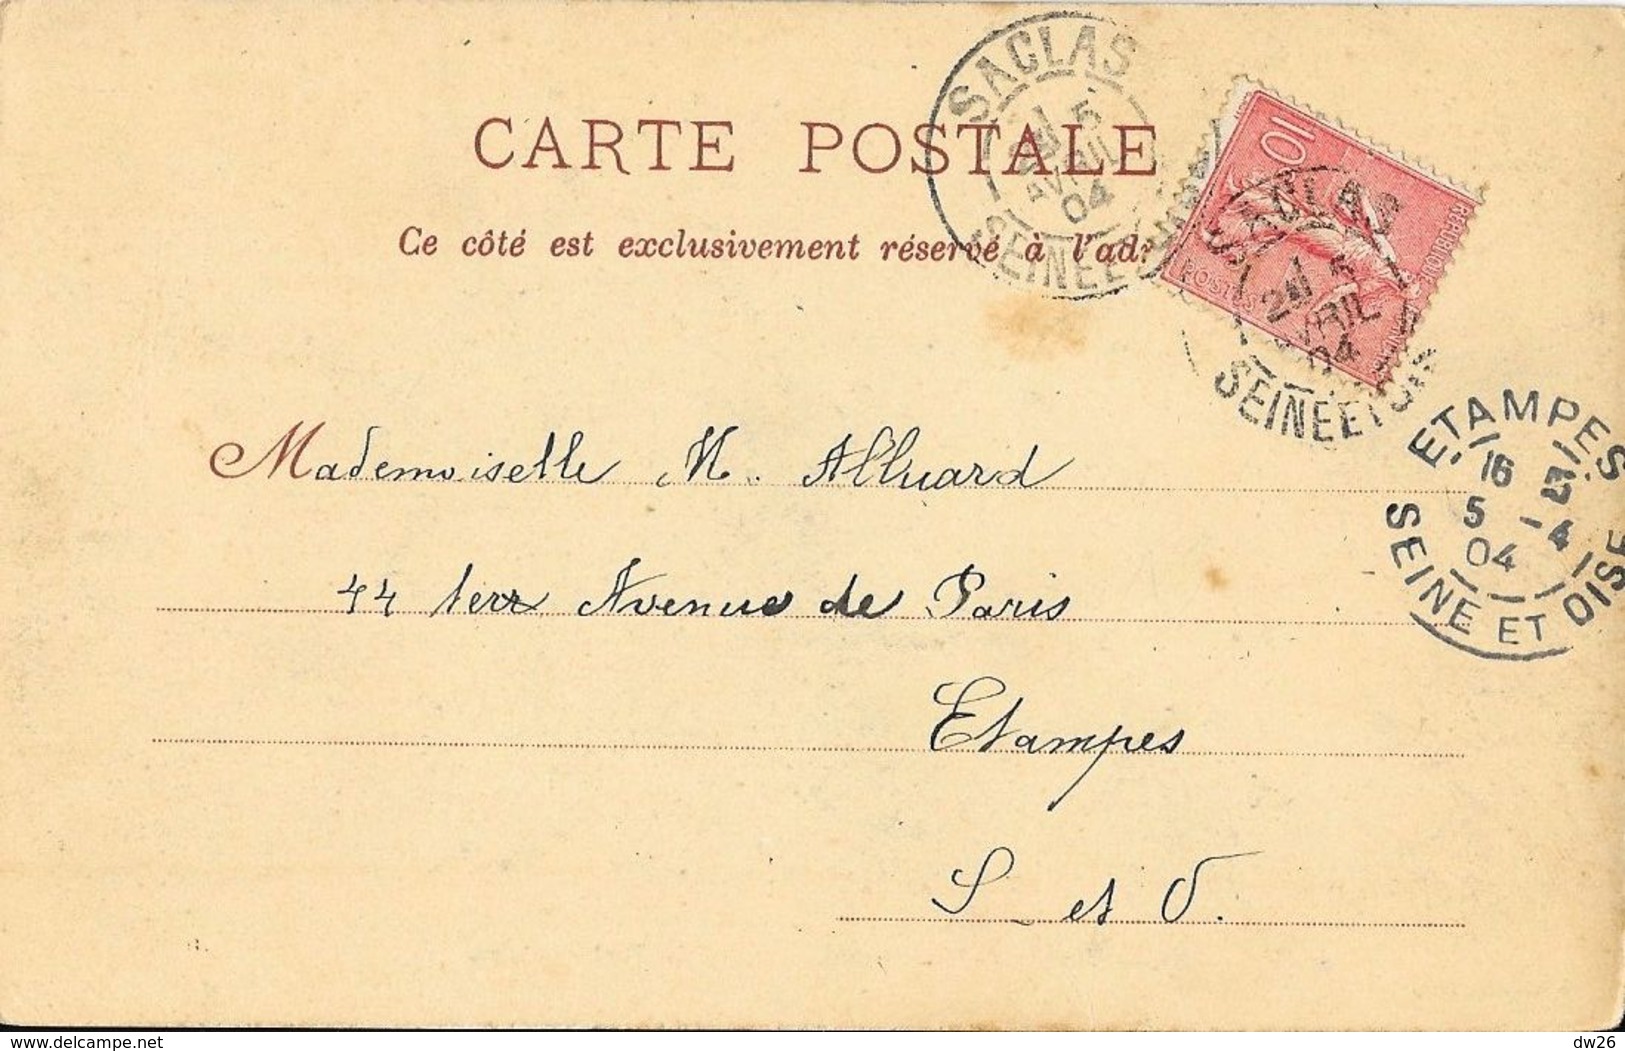 CARTE POSTALE
Ce côté est exclusivement réservé à l'ad
Mademoiselle M. Alluard
44 ter Avenue de Paris
Etampes
S et O.
SACLAS
5
AVRIL
04
SEINE ET
10
REPUBLIQUE
POSTES
SACLAS
2E
5
AVRIL
04
SEINE ET
ETAMPES
16
5 4
04
SEINE ET OISE
delcampe.net
dw26